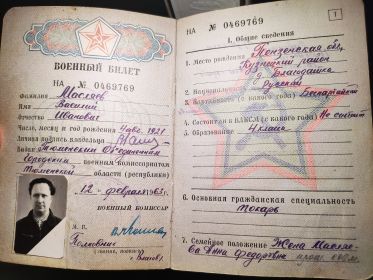 ВОЕННЫЙ БИЛЕТ
НА № 0469769
Фамилия Масляев
Имя Василий
Отчество Иванович
Число, месяц и год рождения 4 авг. 1921
Личная подпись владельца
Выдан Тюменским Объединённым
Городским военным комиссариатом
Тюменской области (республики)
„12“ февраля 1963 г.
ВОЕННЫЙ КОМИССАР
М. П.
Полковник
(звание, подпись)
1
НА № 0469769
I. Общие сведения
1. Место рождения Пензенская обл,
Кузнецкий район
д. Благодатка
2. Национальность Русский
3. Партийность (с какого года) Беспартийн
4. Состоит ли в ВЛКСМ (с какого года) Не состоит
5. Образование 4 класса
6. Основная гражданская специальность
Токарь
7. Семейное положение Жена Масляе-
ва Анна Федоровна